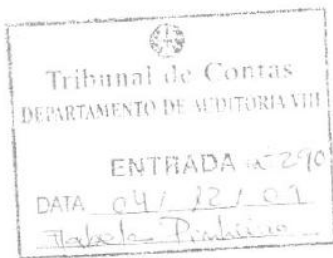 Tribunal de Contas
DEPARTAMENTO DE AUDITORIA VIII
ENTRADA nº 290
DATA 04 / 12 / 01
Pinheiro